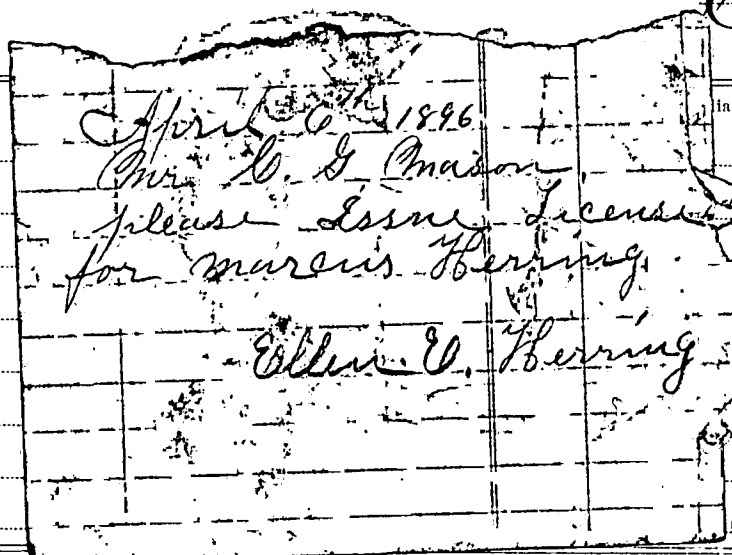 April 6th 1896
Mr. C. G Mason
please Issue License
for marcus Herring.
Ellen. E. Herring